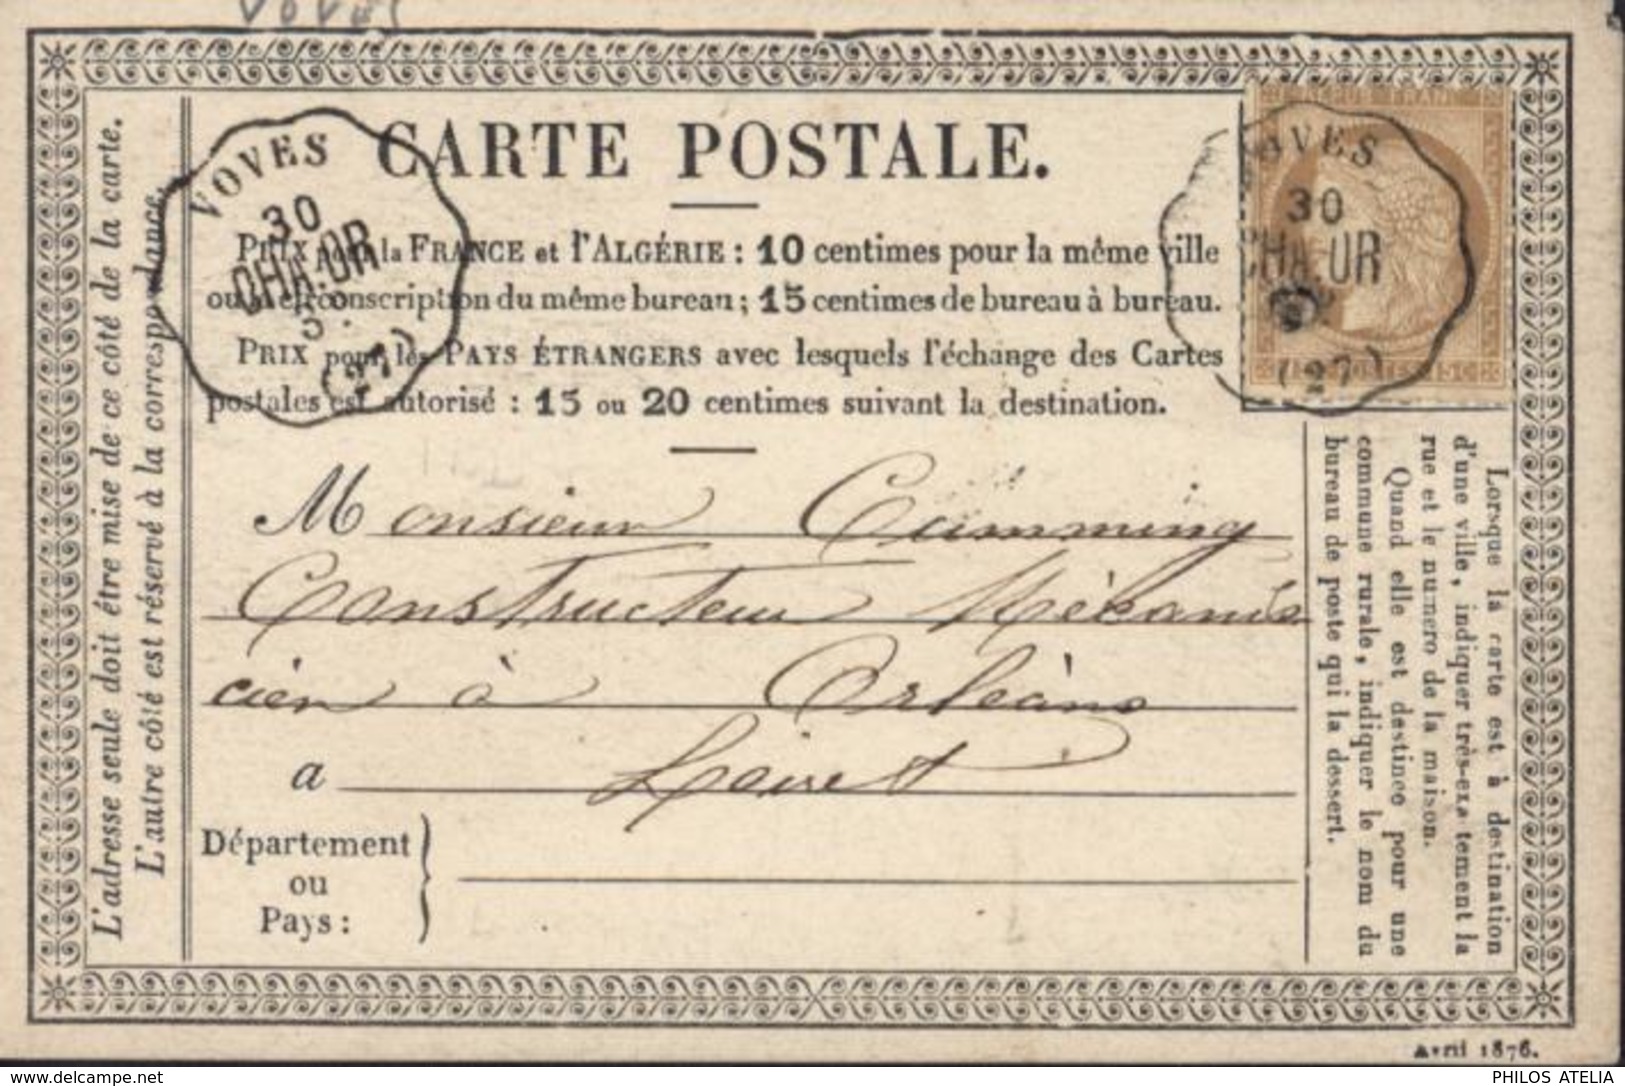 Voves
CARTE POSTALE.
VOVES
30
CHA.OR
5
(27)
VES
30
CHA.UR
(27)
PRIX pour la FRANCE et l'ALGÉRIE : 10 centimes pour la même ville
ou la circonscription du même bureau ; 15 centimes de bureau à bureau.
PRIX pour les PAYS ÉTRANGERS avec lesquels l'échange des Cartes
postales est autorisé : 15 ou 20 centimes suivant la destination.
Monsieur Cumming
Constructeur Mécani
cien à Orléans
a Loiret
Département
ou
Pays :
L'adresse seule doit être mise de ce côté de la carte.
L'autre côté est réservé à la correspondance.
Lorsque la carte est à destination
d'une ville, indiquer très-exactement la
rue et le numero de la maison.
Quand elle est destinée pour une
commune rurale, indiquer le nom du
bureau de poste qui la dessert.
Avril 1876.
PHILOS ATELIA